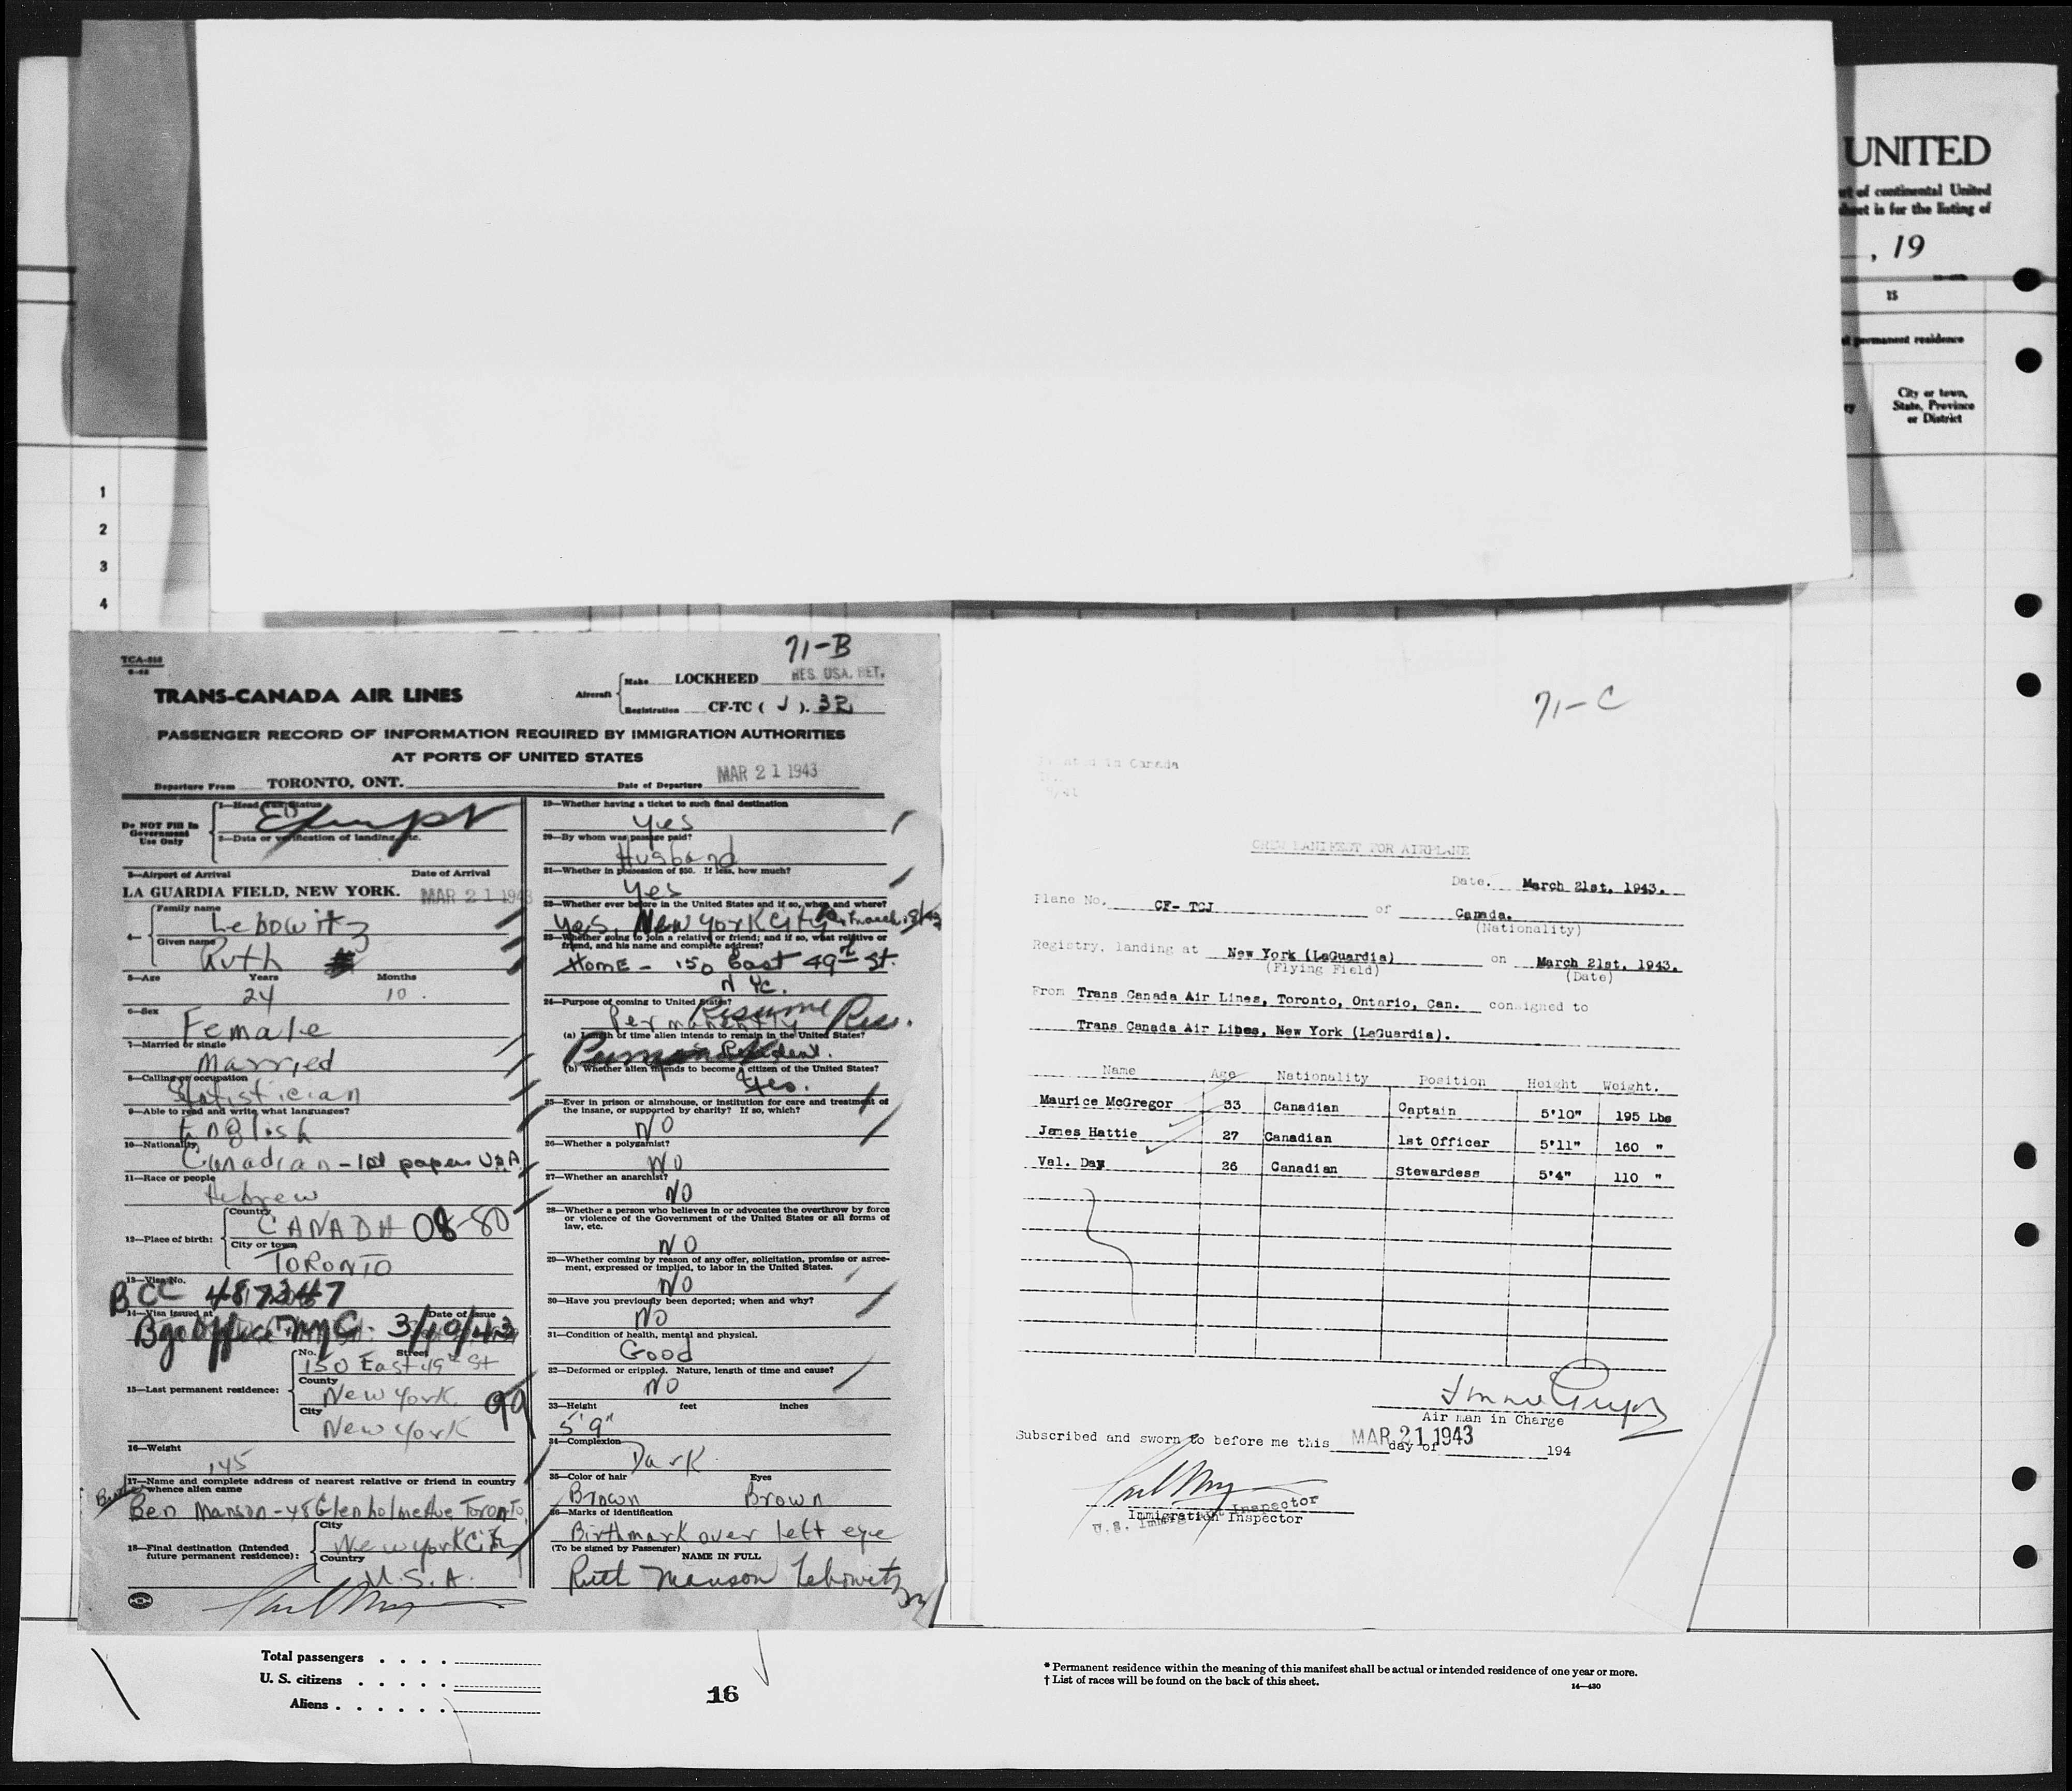 UNITED
of continental United
sheet is for the listing of
, 19
15
permanent residence
City or town,
State, Province
or District
1
2
3
4
71-B
TCA-
TRANS-CANADA AIR LINES
Aircraft
Make LOCKHEED
RES. USA. RET.
Registration CF-TC ( J ). 32
PASSENGER RECORD OF INFORMATION REQUIRED BY IMMIGRATION AUTHORITIES
AT PORTS OF UNITED STATES
Departure From TORONTO, ONT. Date of Departure MAR 21 1943
Do NOT Fill in
Government
Use Only
1—Head Tax Status
Exempt
2—Data or verification of landing, etc.
3—Airport of Arrival Date of Arrival
LA GUARDIA FIELD, NEW YORK. MAR 21 1943
4—
Family name
Lebowitz
Given name
Ruth
5—Age Years Months
24 10.
6—Sex
Female
7—Married or single
Married
8—Calling or occupation
Statistician
9—Able to read and write what languages?
English
10—Nationality
Canadian - 1st papers USA
11—Race or people
Hebrew
12—Place of birth:
Country
CANADA 08-80
City or town
TORONTO
13—Visa No.
BCC 487247
14—Visa issued at Date of Issue
Office NYC. 3/10/43
15—Last permanent residence:
No. Street
150 East 49th St
County
New York
99
City
New York
16—Weight
145
17—Name and complete address of nearest relative or friend in country
whence alien came
Ben Manson - 48 Glenholme Ave Toronto
18—Final destination (Intended
future permanent residence):
City
New York City
Country
U.S.A.
19—Whether having a ticket to such final destination
Yes
20—By whom was passage paid?
Husband
21—Whether in possession of $50. If less, how much?
Yes
22—Whether ever before in the United States and if so, when and where?
Yes, New York City
23—Whether going to join a relative or friend; and if so, what relative or
friend, and his name and complete address?
Home - 150 East 49th St.
NYC.
24—Purpose of coming to United States?
Permanently Resume Res.
(a) Length of time alien intends to remain in the United States?
Resident.
(b) Whether alien intends to become a citizen of the United States?
Yes.
25—Ever in prison or almshouse, or institution for care and treatment of
the insane, or supported by charity? If so, which?
NO
26—Whether a polygamist?
NO
27—Whether an anarchist?
NO
28—Whether a person who believes in or advocates the overthrow by force
or violence of the Government of the United States or all forms of
law, etc.
NO
29—Whether coming by reason of any offer, solicitation, promise or agree-
ment, expressed or implied, to labor in the United States.
NO
30—Have you previously been deported; when and why?
NO
31—Condition of health, mental and physical.
Good
32—Deformed or crippled. Nature, length of time and cause?
NO
33—Height feet inches
5'9"
34—Complexion
Dark
35—Color of hair Eyes
Brown Brown
36—Marks of identification
Birthmark over left eye
(To be signed by Passenger)
NAME IN FULL
Ruth Manson Lebowitz
71-C
in Canada
CREW MANIFEST FOR AIRPLANE
Date. March 21st. 1943.
Plane No. CF- TCJ of Canada.
(Nationality)
Registry, landing at New York (LaGuardia) on March 21st. 1943.
(Flying Field) (Date)
From Trans Canada Air Lines, Toronto, Ontario, Can. consigned to
Trans Canada Air Lines, New York (LaGuardia).
Name Age Nationality Position Height Weight.
Maurice McGregor 33 Canadian Captain 5'10" 195 Lbs
James Hattie 27 Canadian 1st Officer 5'11" 160 "
Val. Day 26 Canadian Stewardess 5'4" 110 "
Air man in Charge
Subscribed and sworn to before me this MAR 21 1943 day of 194
Immigration Inspector
U.S. Immigrant Inspector
Total passengers . . . .
U. S. citizens . . . . .
Aliens . . . . . .
16
* Permanent residence within the meaning of this manifest shall be actual or intended residence of one year or more.
† List of races will be found on the back of this sheet.
14—430